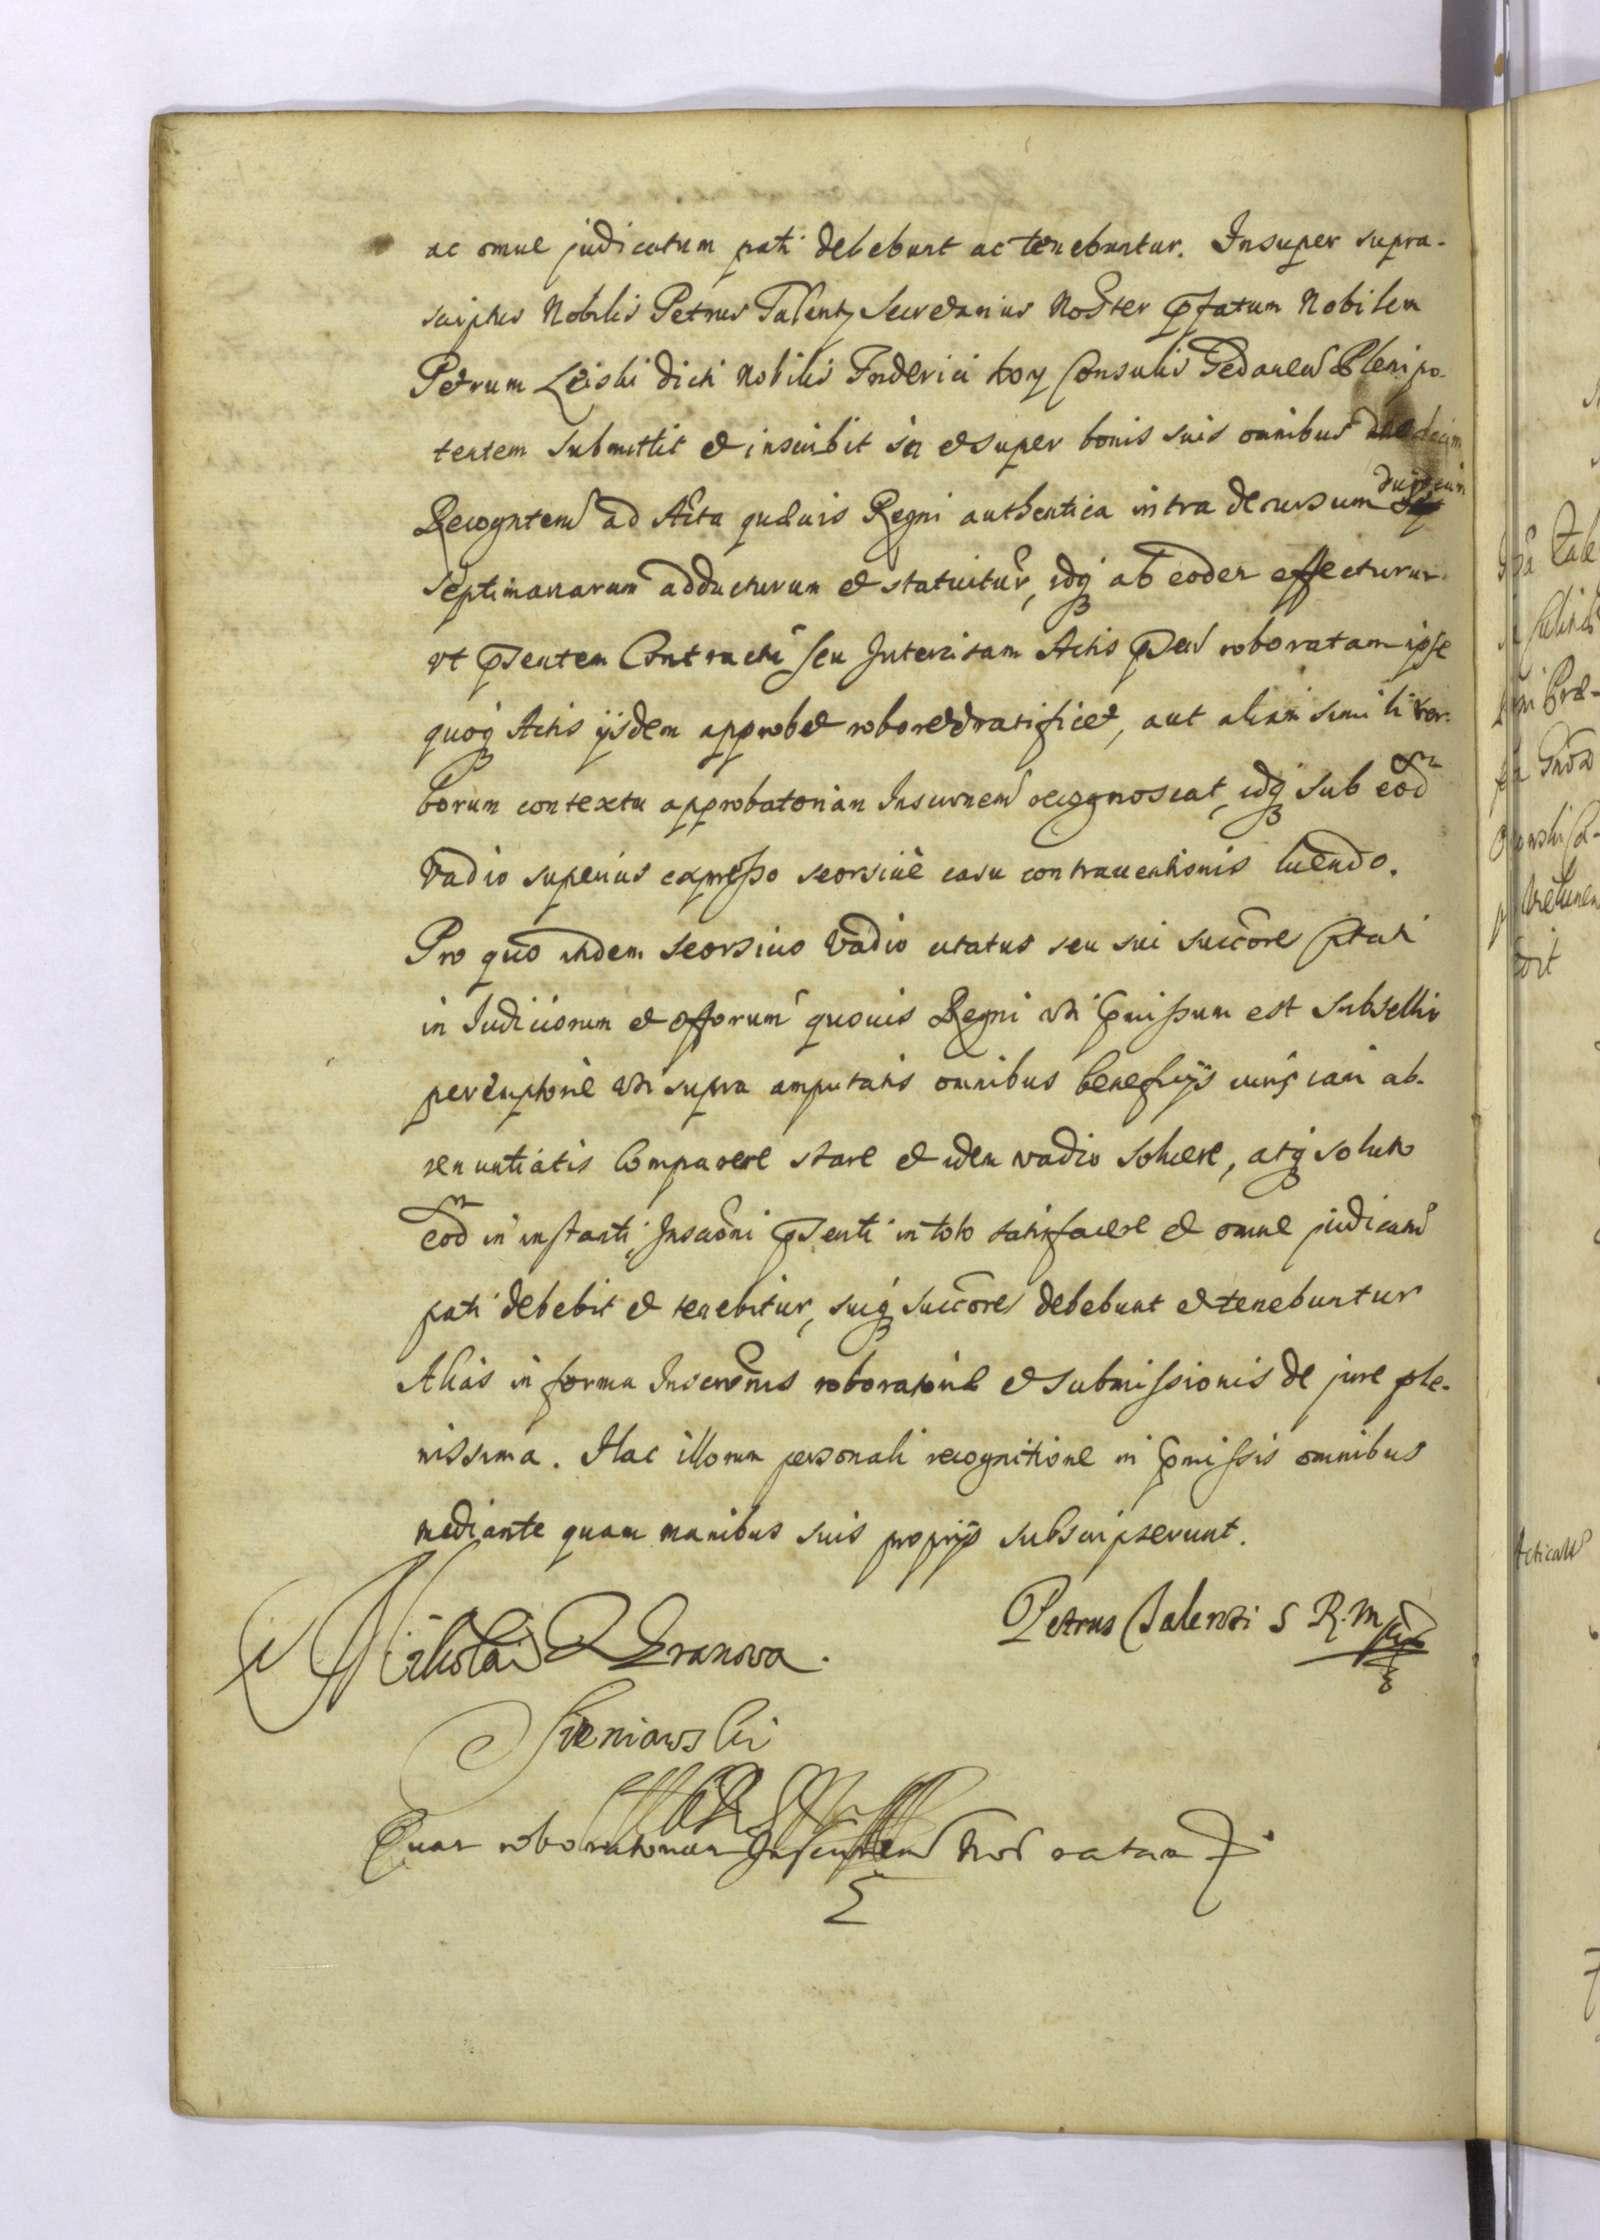 ac omne judicatum pati debebunt ac tenebuntur. Insuper supra-
scriptus Nobilis Petrus Talenty Secretarius Noster pfatum Nobilem
Petrum dicti Nobilis Friderici Consulis Gedanen Plenipo-
tentem submittit et inscribit in et super bonis suis omnibus
Recognten ad Acta quævis Regni authentica intra decursum duodecim
septimanarum adducturum et statuitur, idq ab eodem effecturum
vt psentem Contractu seu Intercisam Actis psen roboratam ipse
quoq Actis ijsdem approbet roboret et ratificet, aut aliam simili ver-
borum contextu approbatoriam Inscripnem recognoscat, idq sub eod
vadio superius expresso seorsiue casu contrauentionis luendo.
Pro quo itidem seorsiuo vadio citatus seu sui succore citati
in Judiciorum et offorum quouis Regni vti pmissum est subsellio
peremptorie vti supra amputatis omnibus beneficijs iam ab-
renuntiatis Comparere stare et idem vadio soluere, atq soluto
eod in instanti, Inscrõni psenti in toto satisfacere et omne judicatu
pati debebit et tenebitur, suiq succore debebunt et tenebuntur
Alias in forma Inscrõnis roborationis et submissionis de jure ple-
nissima. Hac illorum personali recognitione in pmissis omnibus
mediante quam manibus suis proprijs subscripserunt.
Petrus Talenti S R. M
Mikolai z Granowa.
Sieniawski
Quam roboratoriam Inscripnem